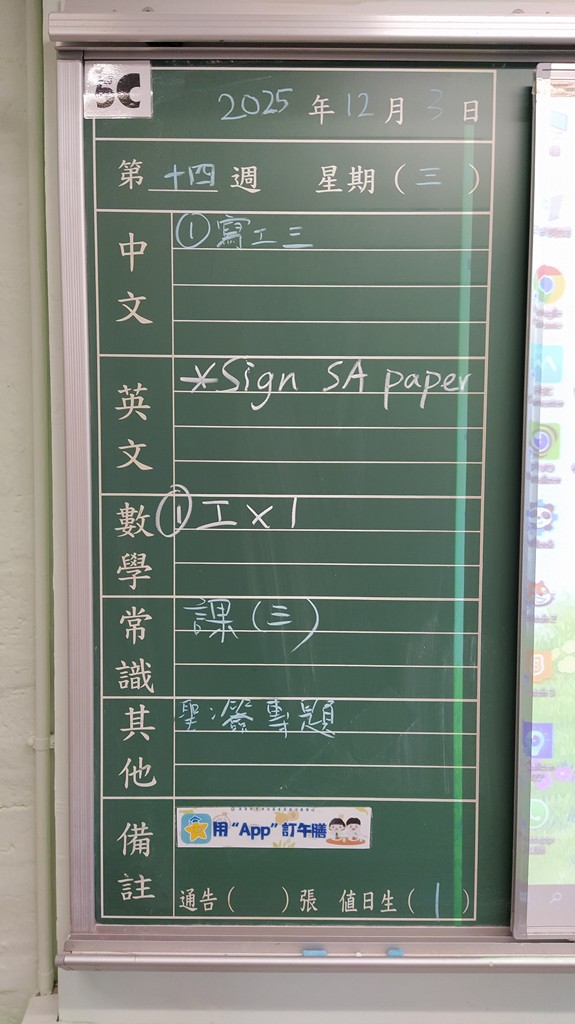 5C
2025年12月3日
第十四週 星期(三)
中文
①寫工三
英文
*Sign SA paper
數學
①工x1
常識
課(三)
其他
聖:簽專題
備註
用“App”訂午膳
通告( )張 值日生(1)